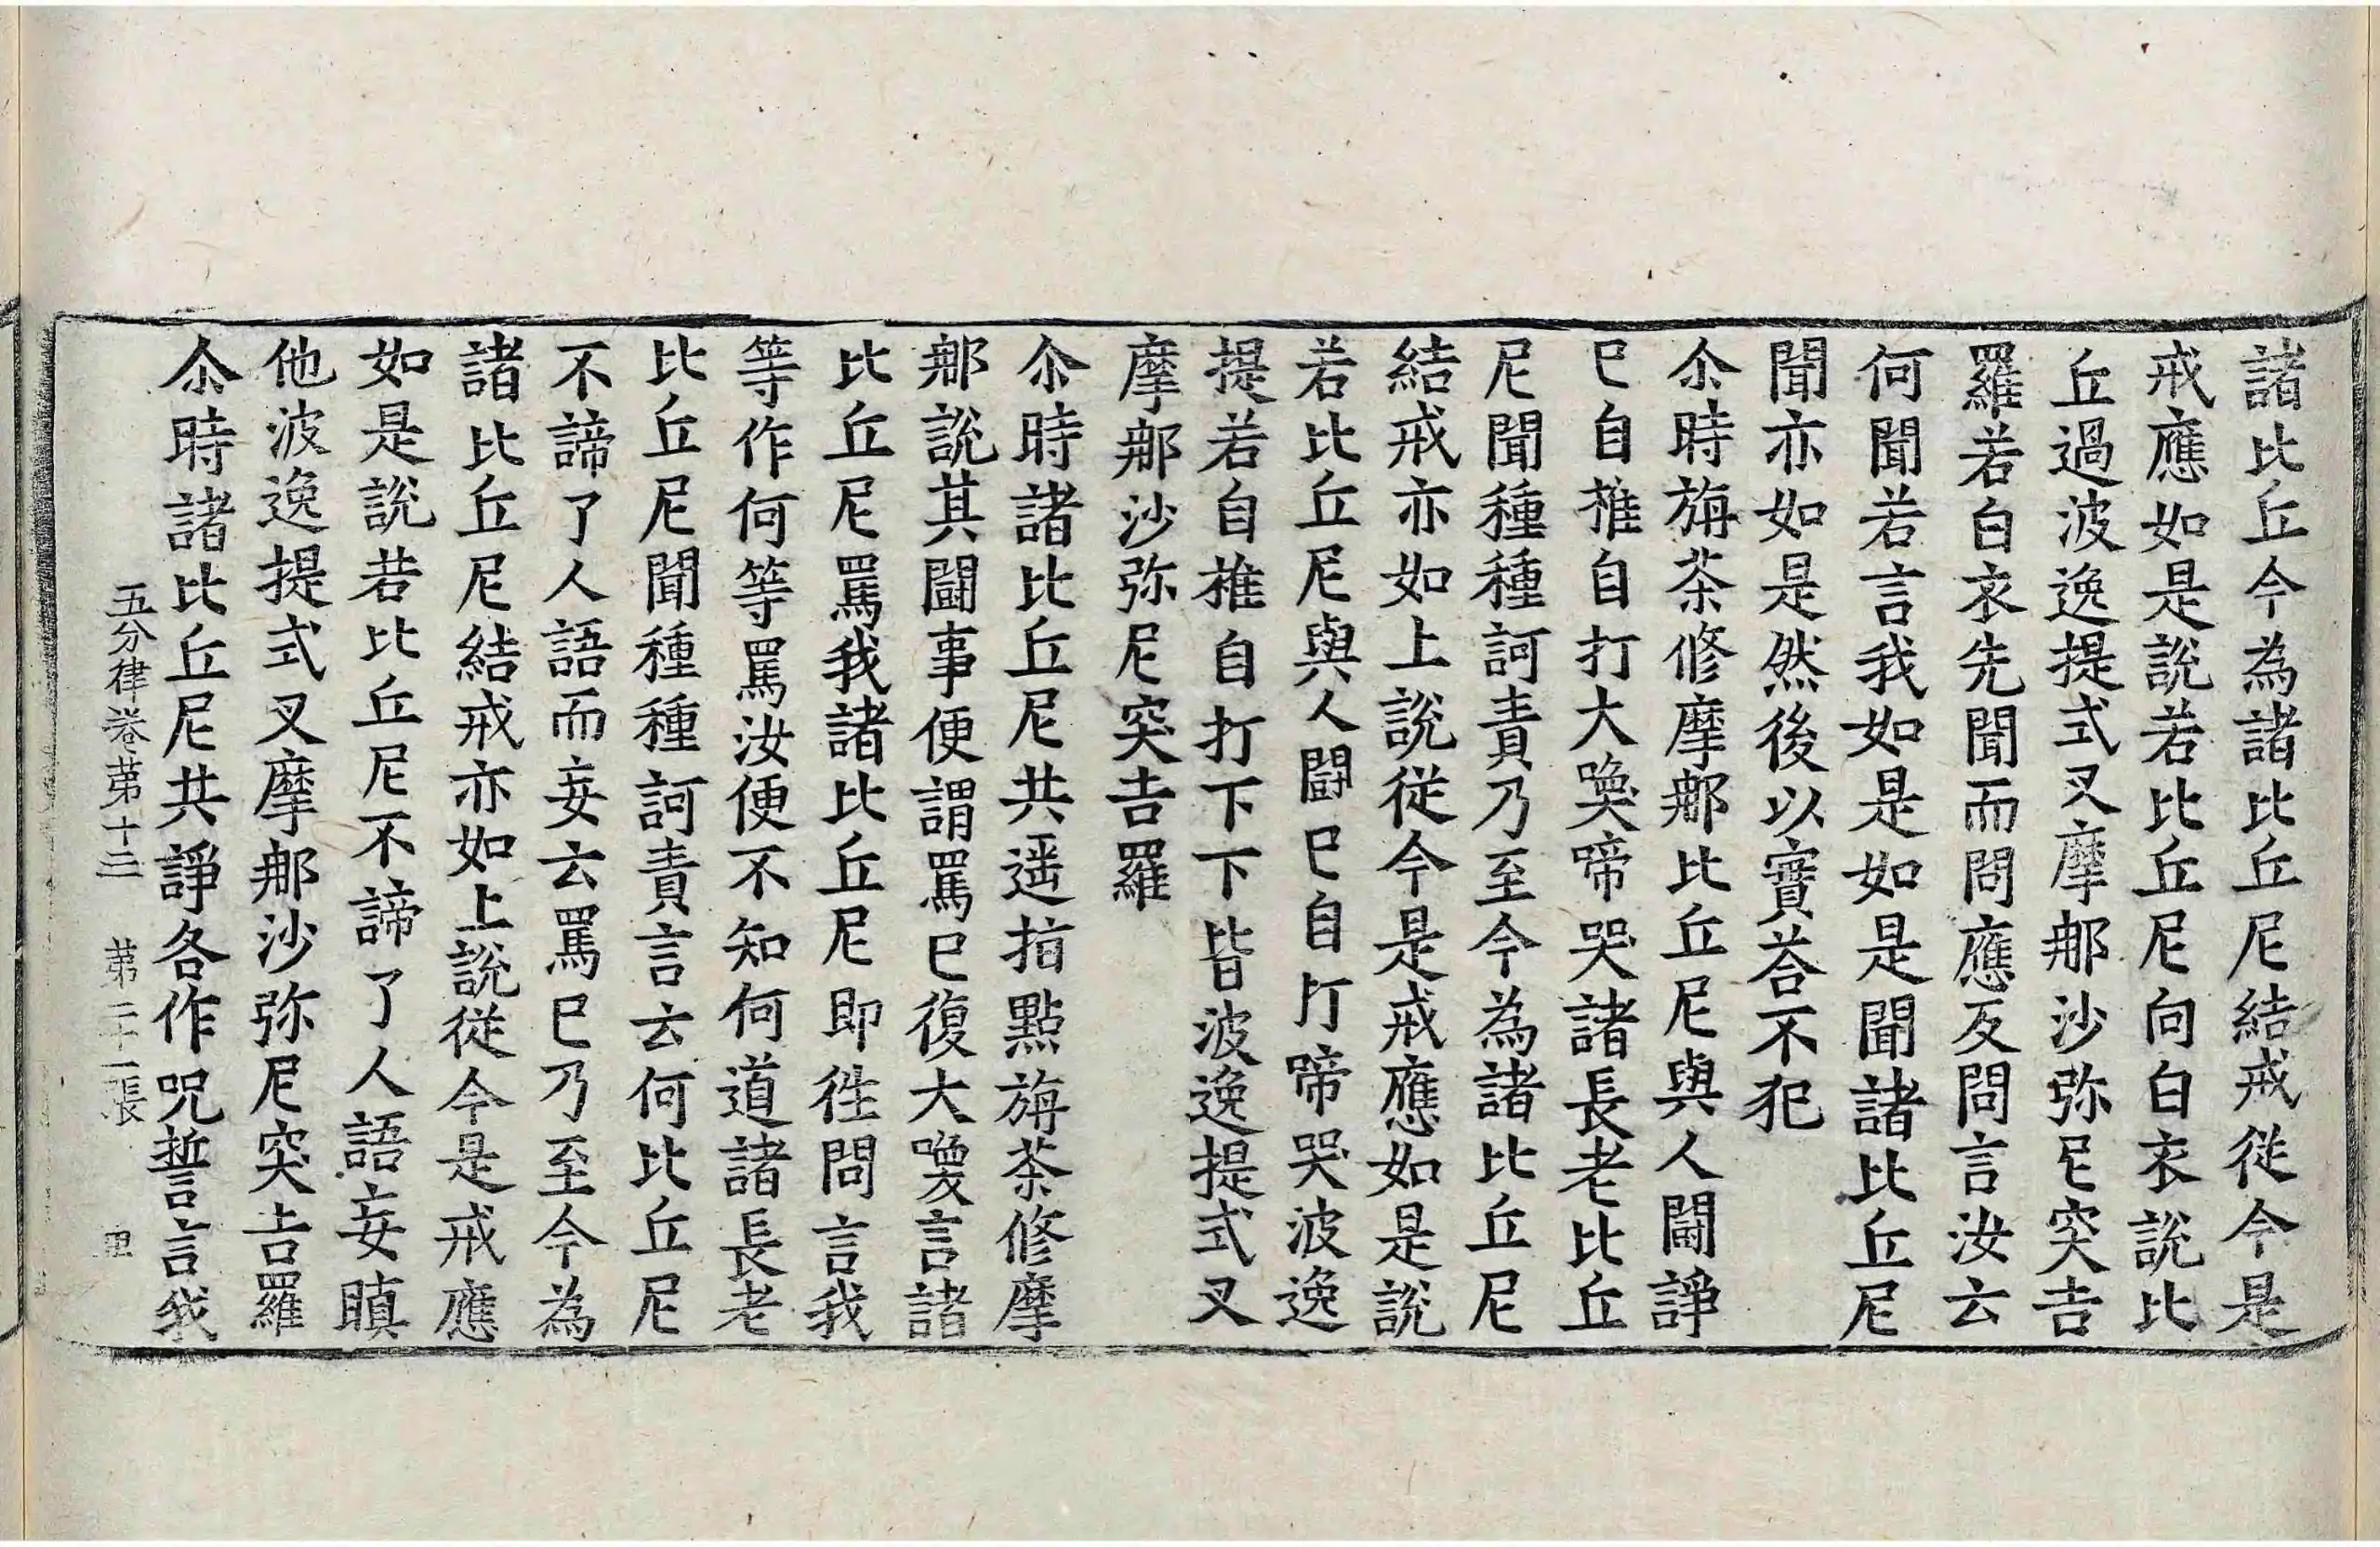 諸比丘今為諸比丘尼結戒從今是
戒應如是說若比丘尼向白衣說比
丘過波逸提式叉摩那沙弥尼突吉
羅若白衣先聞而問應反問言汝云
何聞若言我如是如是聞諸比丘尼
聞亦如是然後以實荅不犯
尒時旃茶修摩那比丘尼與人鬪諍
已自椎自打大喚啼哭諸長老比丘
尼聞種種訶責乃至今為諸比丘尼
結戒亦如上說從今是戒應如是說
若比丘尼與人鬪已自打啼哭波逸
提若自椎自打下下皆波逸提式叉
摩那沙弥尼突吉羅
尒時諸比丘尼共遥指點旃茶修摩
那說其鬪事便謂罵已復大喚言諸
比丘尼罵我諸比丘尼即往問言我
等作何等罵汝便不知何道諸長老
比丘尼聞種種訶責言云何比丘尼
不諦了人語而妄云罵已乃至今為
諸比丘尼結戒亦如上說從今是戒應
如是說若比丘尼不諦了人語妄瞋
他波逸提式叉摩那沙弥尼突吉羅
尒時諸比丘尼共諍各作呪誓言我
五分律卷苐十二 苐二十一張